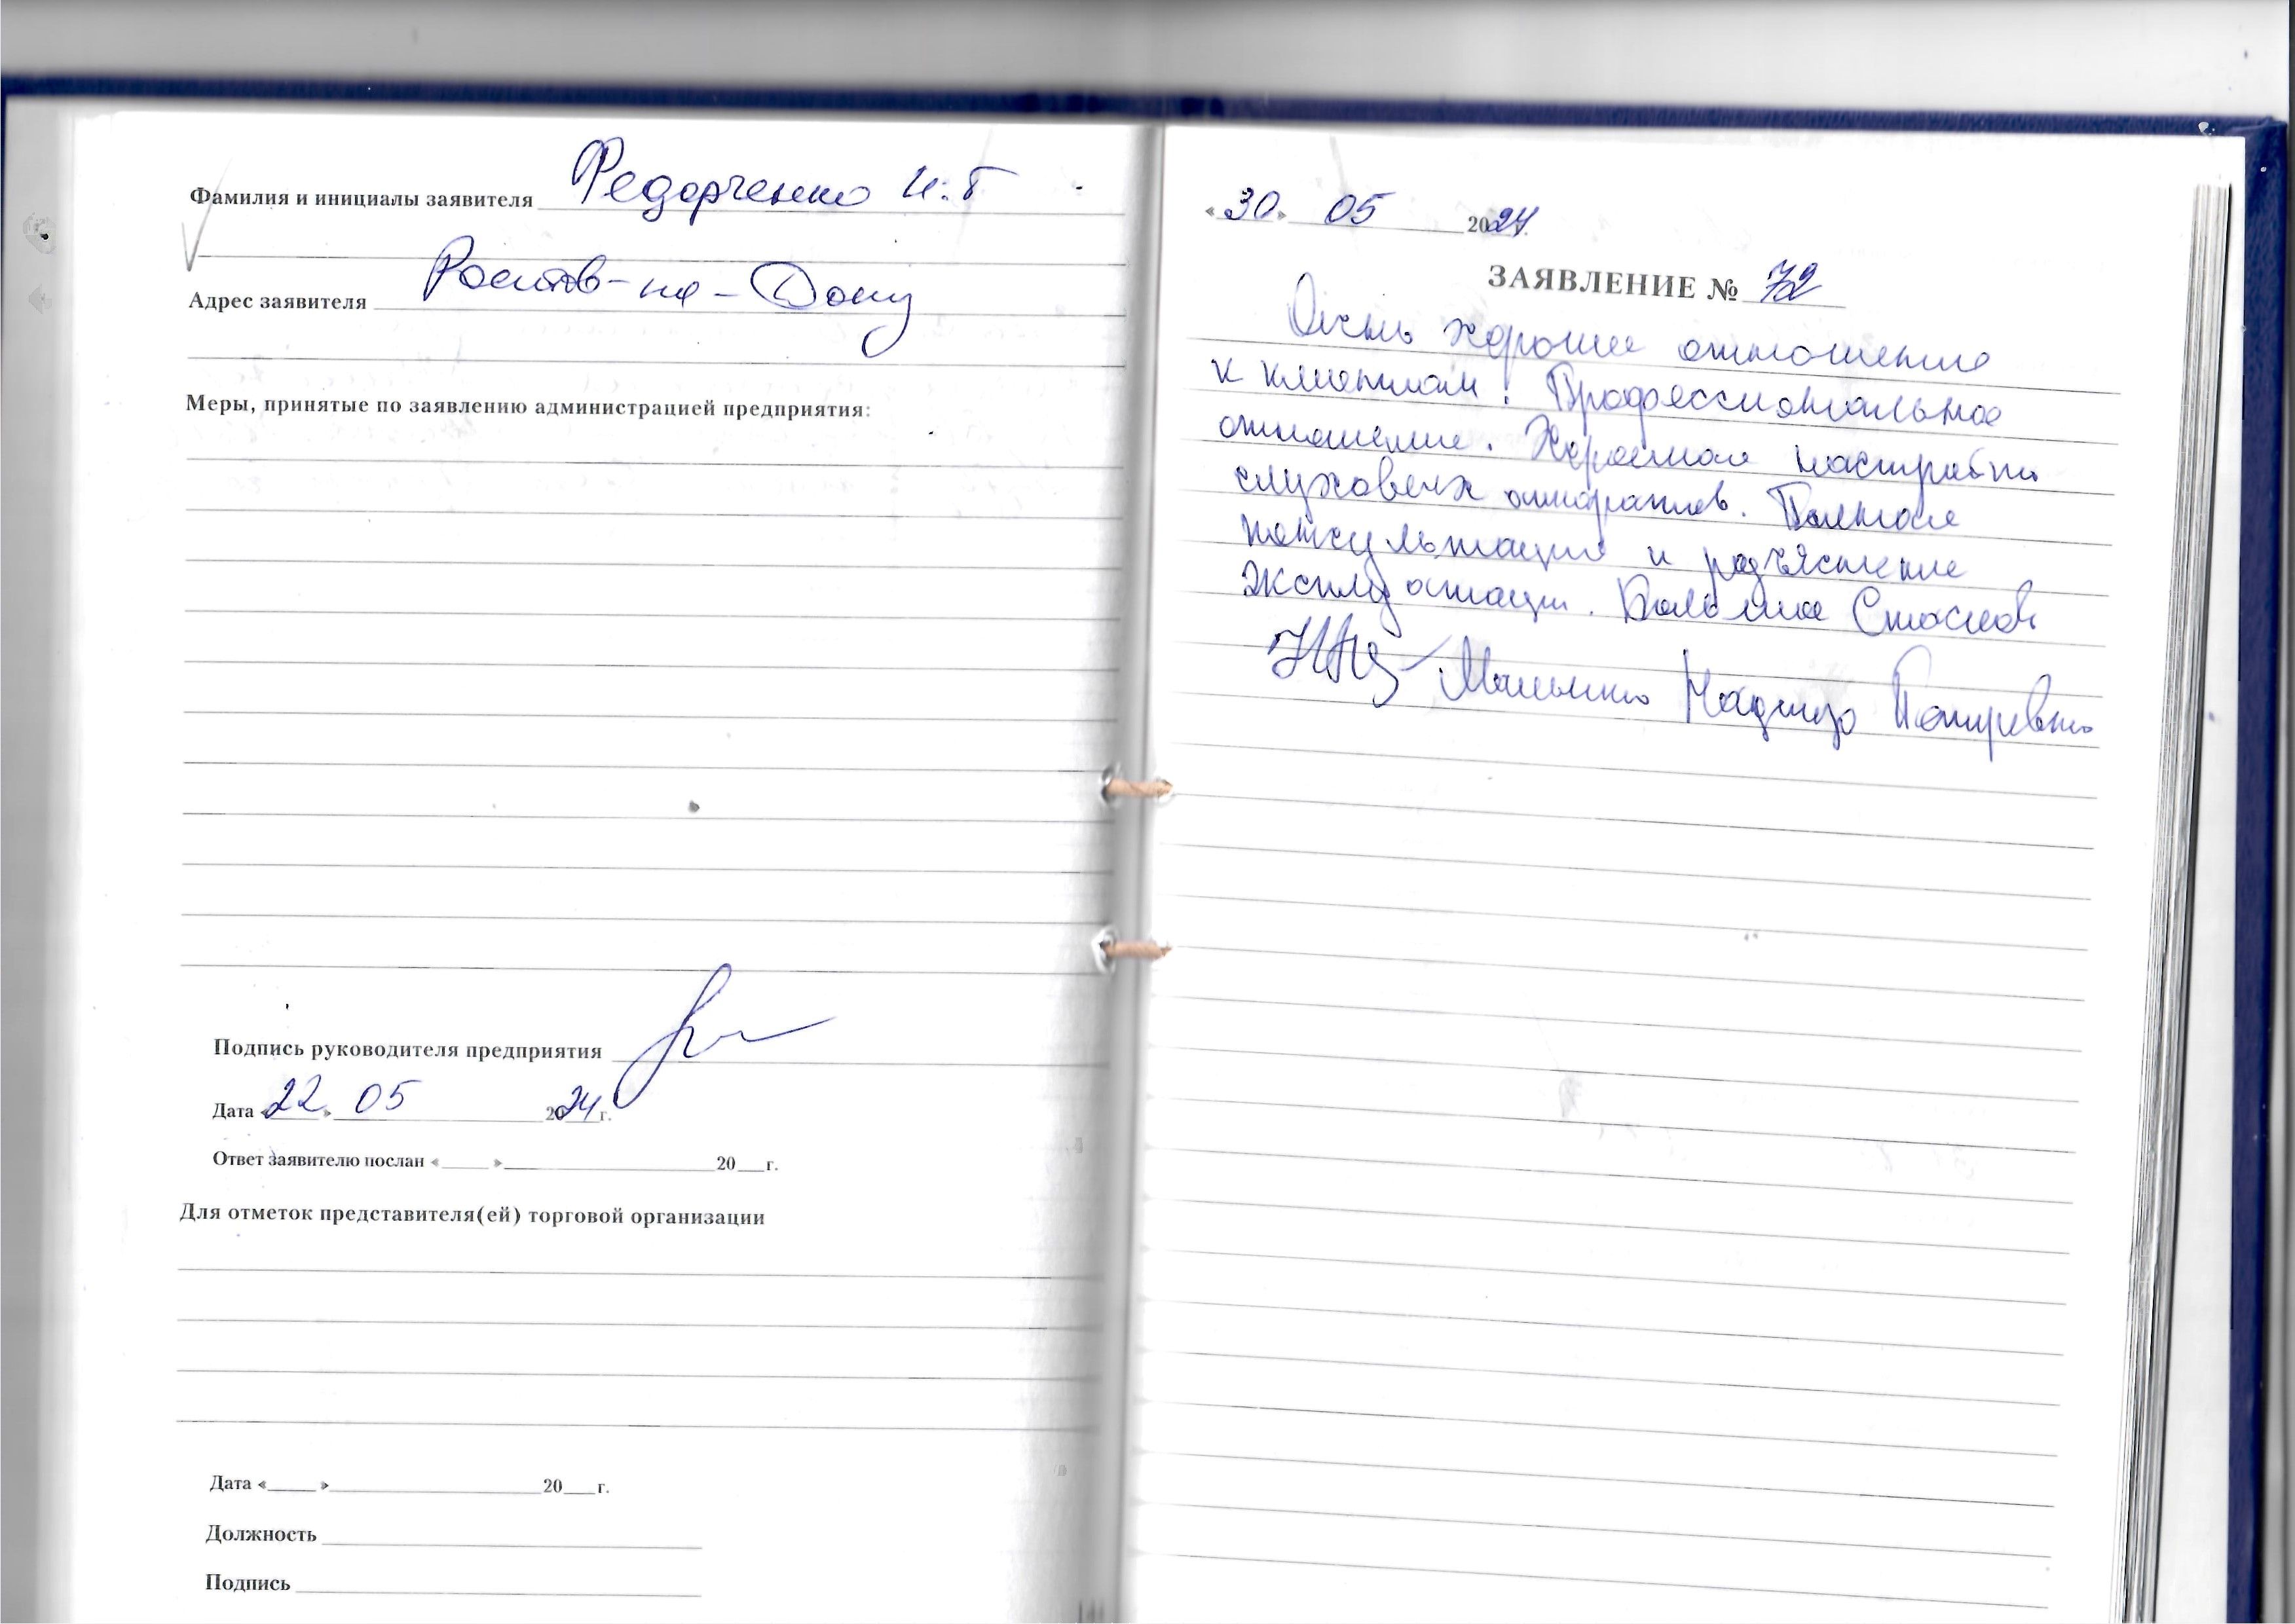 Фамилия и инициалы заявителя Федорченко И.Г
Адрес заявителя Ростов-на-Дону
Меры, принятые по заявлению администрацией предприятия:
Подпись руководителя предприятия
Дата «22» 05 2024 г.
Ответ заявителю послан «___» ___ 20__ г.
Для отметок представителя(ей) торговой организации
Дата «___» ___ 20__ г.
Должность
Подпись
«30» 05 2024
ЗАЯВЛЕНИЕ № 72
Очень хорошее отношение
к клиентам! Профессиональное
отношение. Хорошая настройка
слуховых аппаратов. Полная
консультация и разъяснение
эксплуатации. Большое Спасибо
Надежда